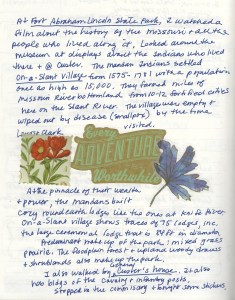 At Fort Abraham Lincoln State Park, I watched a
film about the history of the Missouri + all the
people who lived along it, Looked around the
museum at displays about the Indians who lived
there + @ Custer. The Mandan Indians settled
On-a-Slant Village from 1575-1781 with a population
once as high as 15,000. They farmed miles of
Missouri River bottomland from 10-12 fortified cities
here on the Slant River. The village was empty +
wiped out by disease (smallpox) by the time
Lewis & Clark visited.
Some
ADVENTURES
Worthwhile
At the pinnacle of their wealth
+ power, the mandans built
cozy round earth lodges like the ones at Knife River.
On-a-Slant village shows traces of 75 lodges, inc.
the large ceremonial lodge that is 84 ft in diameter.
Predominant make up of the park: mixed grass
prairie. The floodplain forest + upland woody draws
+ shrublands also make up the park.
I also walked by Custer's house. It also
has bldgs of the Cavalry + infantry posts,
Stopped in the commissary + bought some stickers.